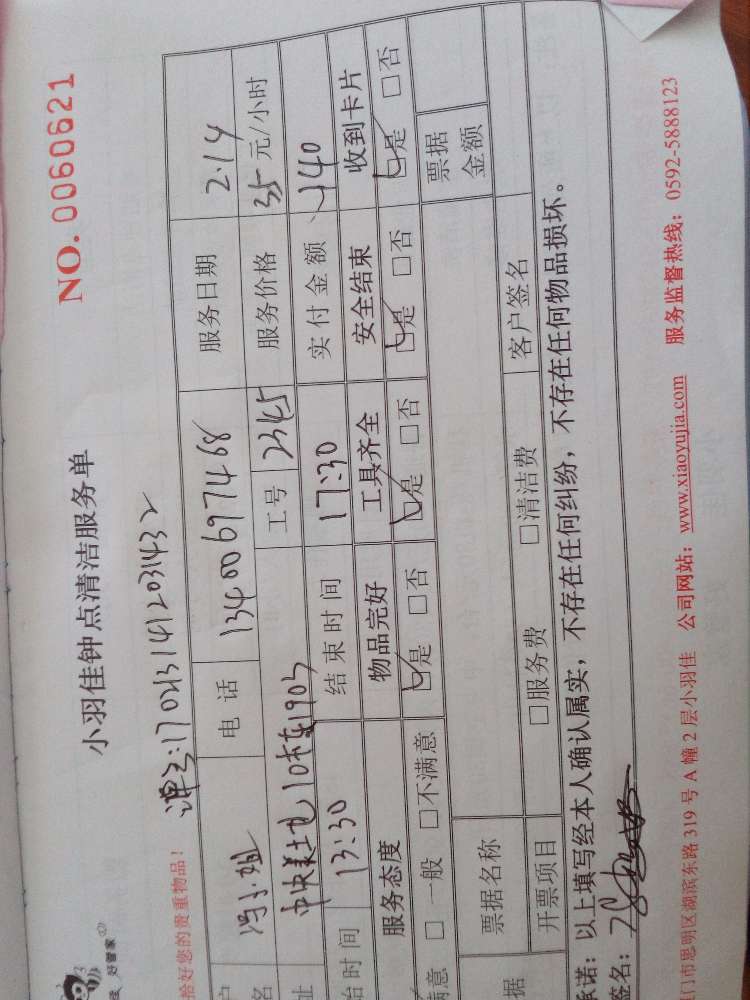 好管家
小羽佳钟点清洁服务单
NO. 0060621
恰好您的贵重物品！
户 冯小姐 电话 13400697468 服务日期 2.14
名
址 中央美地10栋1903 工号 2345 服务价格 35元/小时
始时间 13:30 结束时间 17:30 实付金额 140
服务态度 物品完好 工具齐全 安全结束 收到卡片
满意 □一般 □不满意 □是 □否 □是 □否 □是 □否 □是 □否
据 票据名称 票据金额
开票项目 □服务费 □清洁费 客户签名
承诺：以上填写经本人确认属实，不存在任何纠纷，不存在任何物品损坏。
签名：
门市思明区湖滨东路 319 号 A 幢 2 层小羽佳 公司网站：www.xiaoyujia.com 服务监督热线：0592-5888123